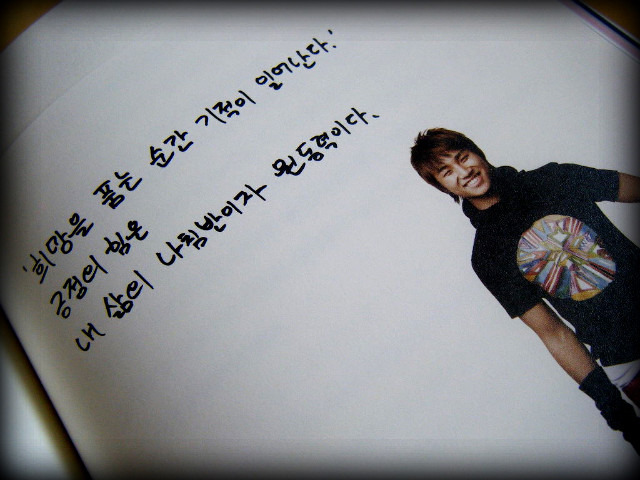 '희망을 품는 순간 기적이 일어난다.'
긍정의 힘은
내 삶의 나침반이자 원동력이다.